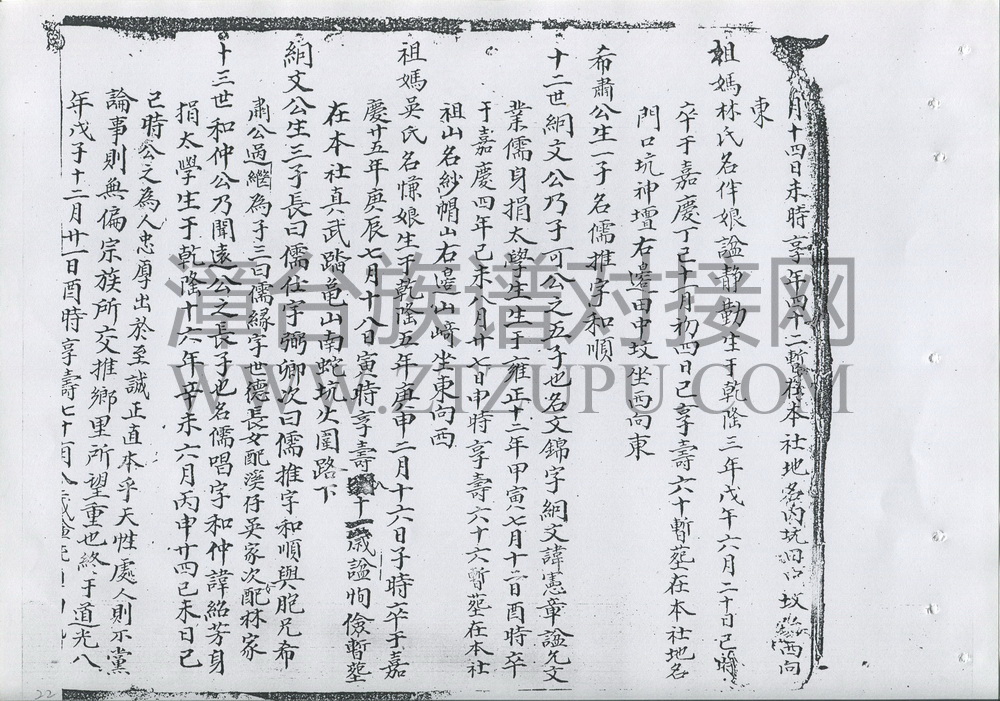 月十四日未時享年四十二暫葬本社地名內坑田口坟坐西向
東
祖媽林氏名伴娘諡静勤生于乾隆三年戊午六月二十日巳時
卒于嘉慶丁巳十一月初四日巳享壽六十暫塟在本社地名
門口坑神壇右邊田中坟坐西向東
希肅公生一子名儒推字和順
十二世絅文公乃子可公之五子也名文錦字絅文諱憲章諡允文
業儒身捐太學生生于雍正十二年甲寅七月十一日酉時卒
于嘉慶四年己未八月廿七日申時享壽六十六暫塟在本社
祖山名紗帽山右邉山崎坐東向西
祖媽吳氏名慊娘生于乾隆五年庚申二月十六日子時卒于嘉
慶廿五年庚辰七月十八日寅時享壽十一歲諡恂儉暫塟
在本社真武踏亀山南蛇坑火圍路下
絅文公生三子長曰儒任字弼卿次曰儒推字和順與胞兄希
肅公過繼為子三曰儒緣字世德長女配溪仔吳家次配林家
十三世和仲公乃開遠公之長子也名儒唱字和仲諱紹芳身
捐太學生于乾隆十六年辛未六月丙申廿四己未日己
巳時公之為人忠厚出於至誠正直本乎天性處人則不黨
論事則無偏宗族所交推鄉里所望重也終于道光八
年戊子十二月廿一日酉時享壽七十有八歲
漳台族谱对接网
WWW.ZTZUPU.COM
22